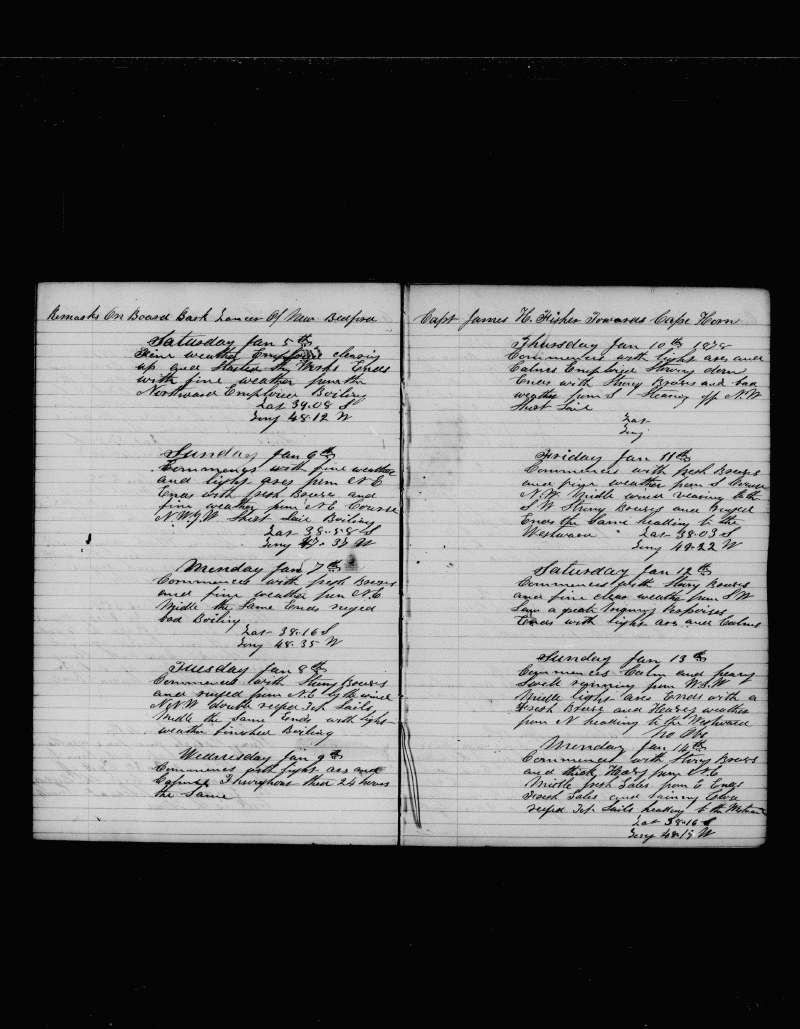 Remarks On Board Bark Lancer Of New Bedford
Saturday Jan 5th
Fine weather Employed clearing
up and Started try Works Ends
with fine weather from the
Northward Employed Boiling
Lat 39.08 S
Long 48.12 W
Sunday Jan 6th
Commences with fine weather
and light ares from N E
Ends with fresh Breeze and
fine weather from N E Course
N.W.G.W Short Sail Boiling
Lat 38.58 S
Long 47.37 W
Monday Jan 7th
Commences with fresh Breezes
and fine weather from N.E
Middle the Same Ends ruged
bad Boiling
Lat 38.16 S
Long 48.35 W
Tuesday Jan 8th
Commences with Strong Breezes
and ruged from N.E by the wind
N.N.W double reefed Top Sails
Middle the Same Ends with light
weather finished Boiling
Wednesday Jan 9th
Commences with light ares and
Calms Throughout thes 24 hours
the Same
Capt James H. Fisher Towards Cape Horn
Thursday Jan 10th 1878
Commences with light ares and
Calmes Employed Stowing down
Ends with Strong Breezes and bad
weather from S Stearing off N.W
Short Sail
Lat
Long
Friday Jan 11th
Commences with fresh Breezes
and fine weather from S Course
N.W. Middle wind vearing to the
S W Strong Breezes and Ruged
Ends the Same heading to the
Westward Lat 38.03 S
Long 49.22 W
Saturday Jan 12th
Commences with Strong Breezes
and fine clear weather from S W
Saw a great many Porpoises
Ends with light ares and Calms
Sunday Jan 13th
Commences Calm and heavy
Swell running from W.S.W
Middle light ares Ends with a
Fresh Breeze and Heavy weather
from N heading to the Westward
No Obs
Monday Jan 14th
Commences with Strong Breezes
and thick Heavy from N.E
Middle fresh Gales from E Ends
Fresh Gales and
reefed Top Sails heading to the Westward
Lat 38.16 S
Long 48.15 W